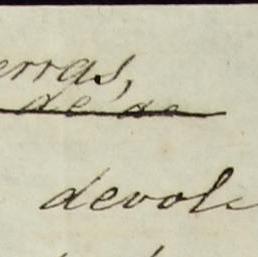 erras,
de de
devol